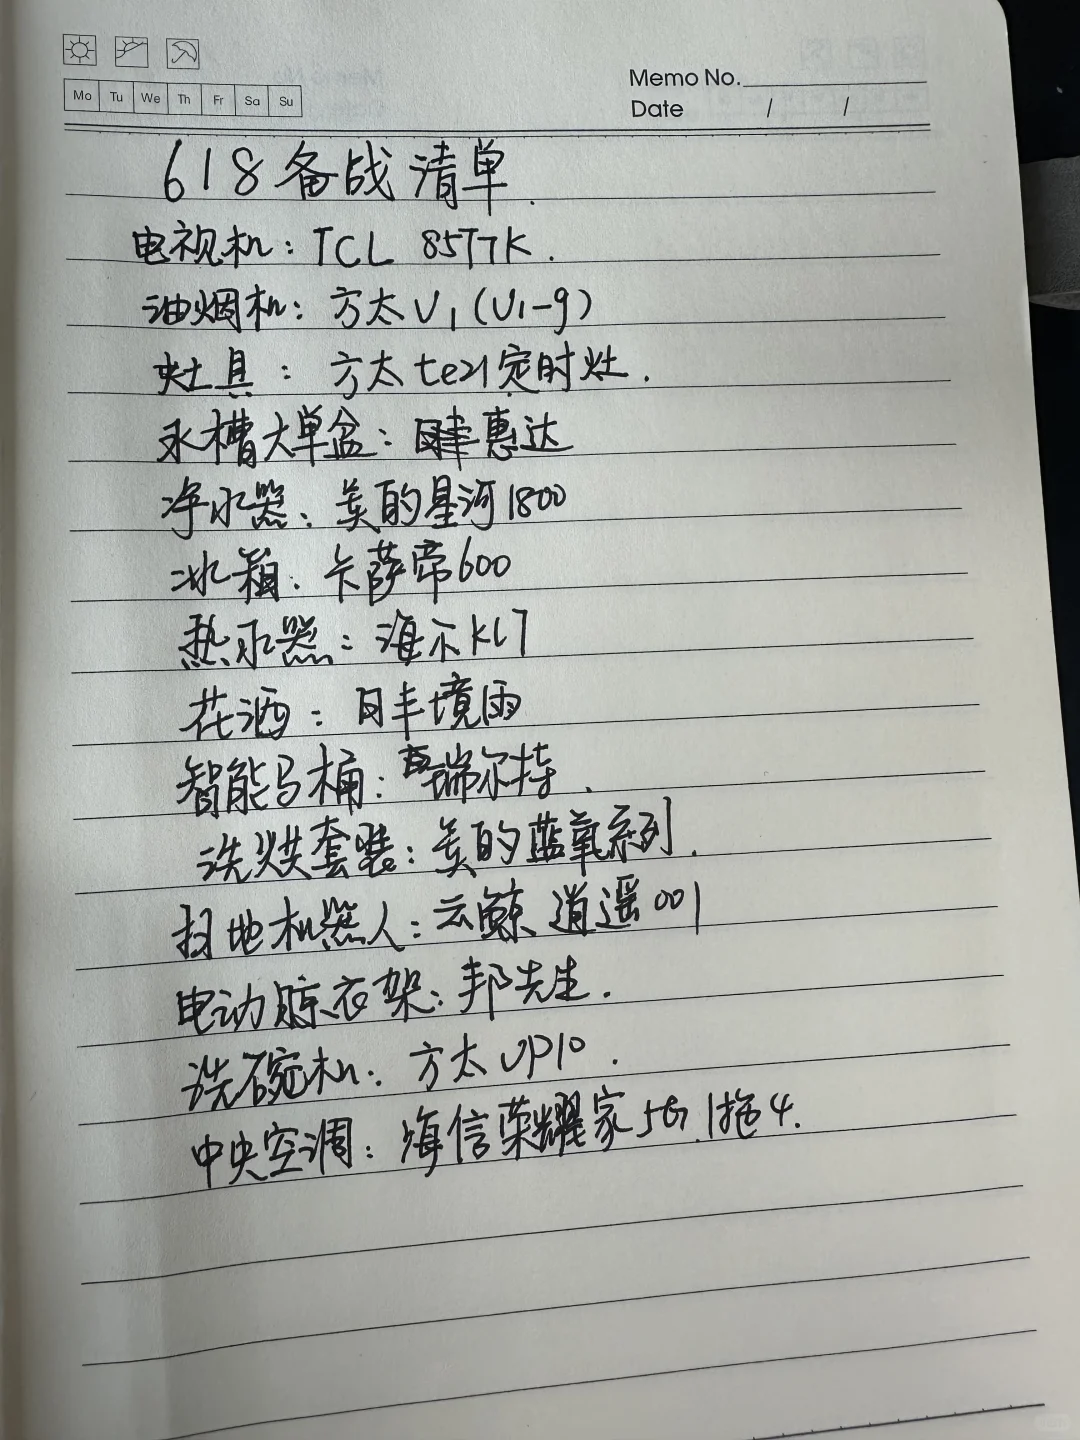 Mo Tu We Th Fr Sa Su
Memo No.
Date / /
618备战清单.
电视机：TCL 85T7K.
油烟机：方太V1(V1-g)
灶具：方太te21定时灶.
水槽大单盆：惠达
净水器：美的星河1800
冰箱：卡萨帝600
热水器：海尔KL7
花洒：日丰境雨
智能马桶：瑞尔特.
洗烘套装：美的蓝氧系列.
扫地机器人：云鲸逍遥001
电动晾衣架：邦先生.
洗碗机：方太VP10.
中央空调：海信荣耀家5G.1拖4.